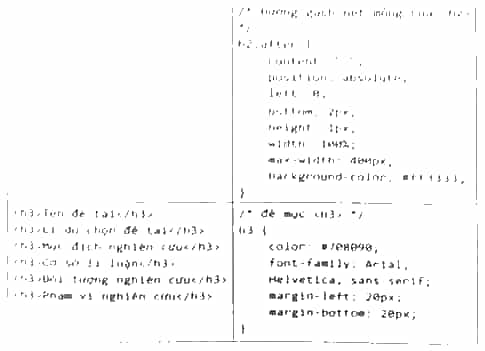 /* Đường gạch nét mỏng của <h2>
*/
h2:after {
content: " ";
position: absolute;
left: 0;
bottom: 2px;
height: 1px;
width: 100%;
max-width: 400px;
background-color: #ff3333;
}
<h3>Tên đề tài</h3>
<h3>Lí do chọn đề tài</h3>
<h3>Mục đích nghiên cứu</h3>
<h3>Cơ sở lí luận</h3>
<h3>Đối tượng nghiên cứu</h3>
<h3>Phạm vi nghiên cứu</h3>
/* đề mục <h3> */
h3 {
color: #708090;
font-family: Arial,
Helvetica, sans serif;
margin-left: 20px;
margin-bottom: 20px;
}